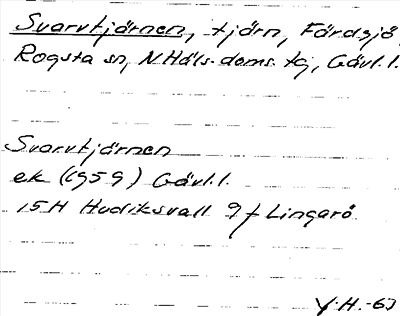 Svarvtjärnen, tjärn, Färdsjö
Rogsta sn, N Häls. doms. tg, Gävl. l.
Svarvtjärnen
ek (1959) Gävl. l.
15H Hudiksvall 9f Lingarö
Y.H. -63